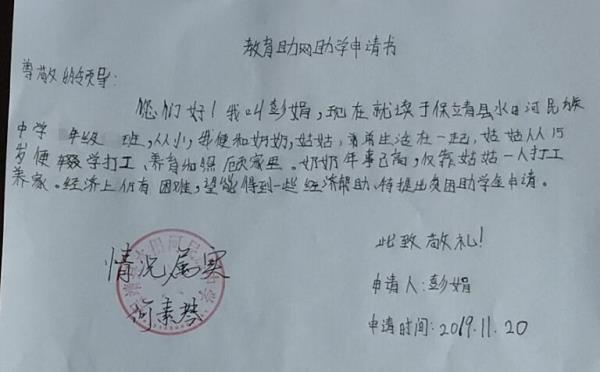 教育助网助学申请书
尊敬的领导:
您们好!我叫彭娟,现在就读于保靖县水田河民族
中学 年级 班,从小,我便和奶奶,姑姑,弟弟生活在一起,姑姑从15
岁便辍学打工、养育和照顾家里。奶奶年事已高,仅靠姑姑一人打工
养家。经济上仍有困难,望能得到一些经济帮助、特提出贫困助学金申请。
此致敬礼!
情况属实
何素琴
申请人:彭娟
申请时间:2019.11.20